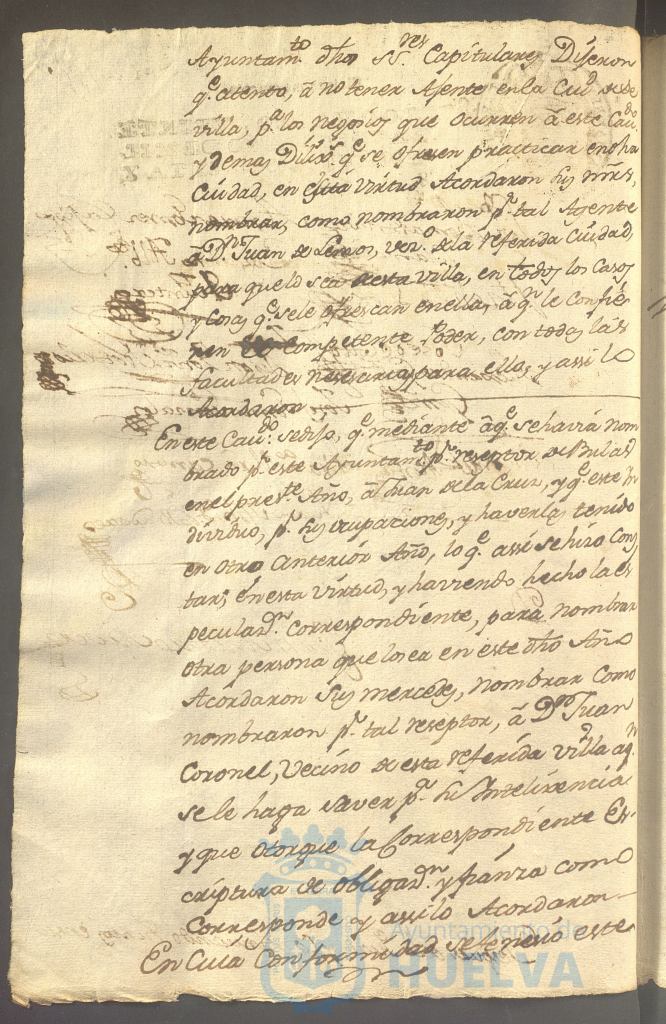 Ayuntam.to dho S.res Capitulares Dijeron
q.e atento, â no tener Agente en la Ciu.d desde
villa, p.a los negosios que ocurren â este Cav.do
y demas Dilix.s q.e se ofresen practicar en dha
Ciudad, en esta virtud Acordaron sus mrs,
nombrar, como nombraron p.r tal Agente
â D.n Juan de Lemos, vez.o de la referida Ciudad,
para que lo sea desta villa, en todos los Casos
y Cosas q.e se le ofrescan en ella, â q.n le confie
ren competente Poder, con todas las
facultades nesesarias para ello, y assi lo
Acordaron
En este Cav.do se dijo, q.e mediante âq.e se havia nom
brado p.r este Ayuntam.to p.r reseptor de Bulas
en el pres.te Año, â Juan de la Cruz, y q.e este In
dividuo, p.r sus ocupaciones, y haverlas tenido
en otro anterior Año, lo q.e assi se hizo Cons
tar; en esta virtud, y haviendo hecho la es
peculaz.n correspondiente, para nombrar
otra persona que lo sea en este dho Año
Acordaron sus mercedes, nombrar como
nombraron p.r tal reseptor, â D.n Juan
Coronel, Vecino de esta referida villa âq.n
se le haga saver p.a su Intelixencia
y que otorgue la Correspondiente Es-
criptura de obligaz.n y fianza como
Corresponde y assi lo Acordaron
En Cuia Conformidad se fenesio este
Ayuntamiento de
HUELVA